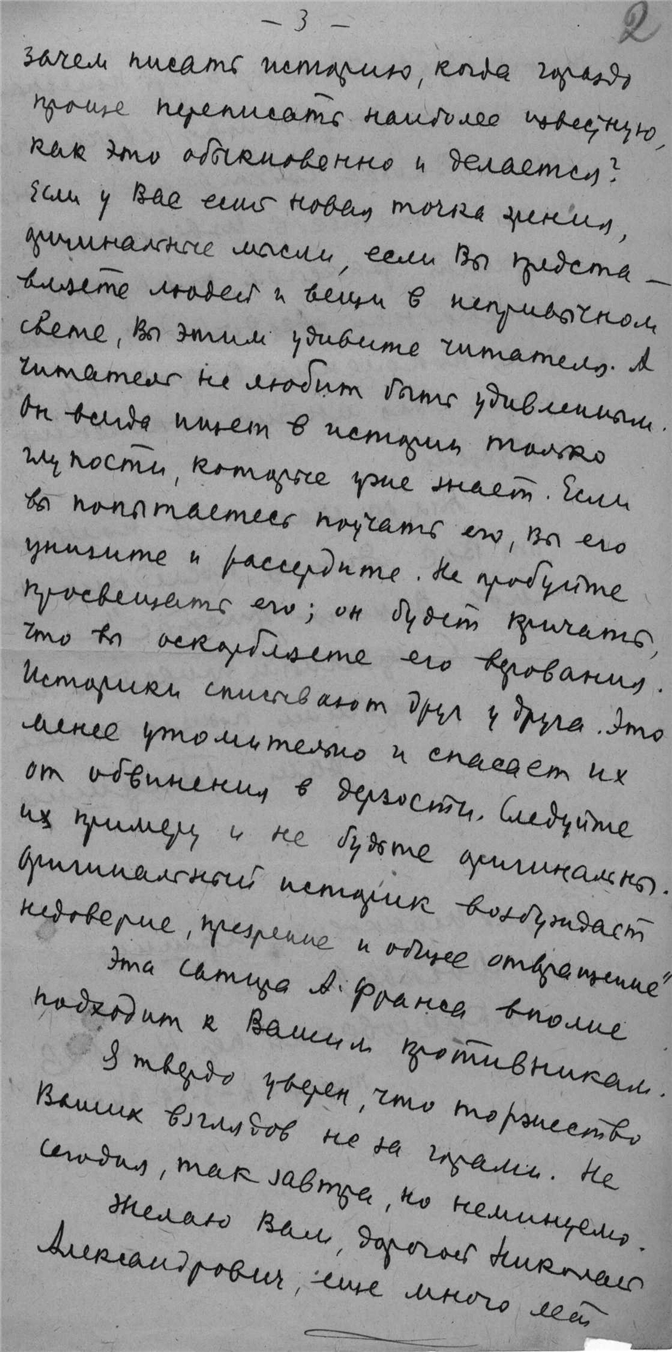 – 3 –
2
зачем писать историю, когда гораздо
проще переписать наиболее известную,
как это обыкновенно и делается?
Если у Вас есть новая точка зрения,
оригинальные мысли, если Вы предста–
вляете людей и вещи в непривычном
свете, Вы этим удивите читателя. А
читатель не любит быть удивленным.
Он всегда ищет в истории только
глупости, которые уже знает. Если
вы попытаетесь поучать его, вы его
унизите и рассердите. Не пробуйте
просвещать его; он будет кричать,
что вы оскорбляете его верования.
Историки списывают друг у друга. Это
менее утомительно и спасает их
от обвинения в дерзости. Следуйте
их примеру и не будьте оригинальны.
Оригинальный историк возбуждает
недоверие, презрение и общее отвращение"
Эта сатира А. Франса вполне
подходит к Вашим противникам.
Я твердо уверен, что торжество
Ваших взглядов не за горами. Не
сегодня, так завтра, но неминуемо.
Желаю Вам, дорогой Николай
Александрович, еще много лет